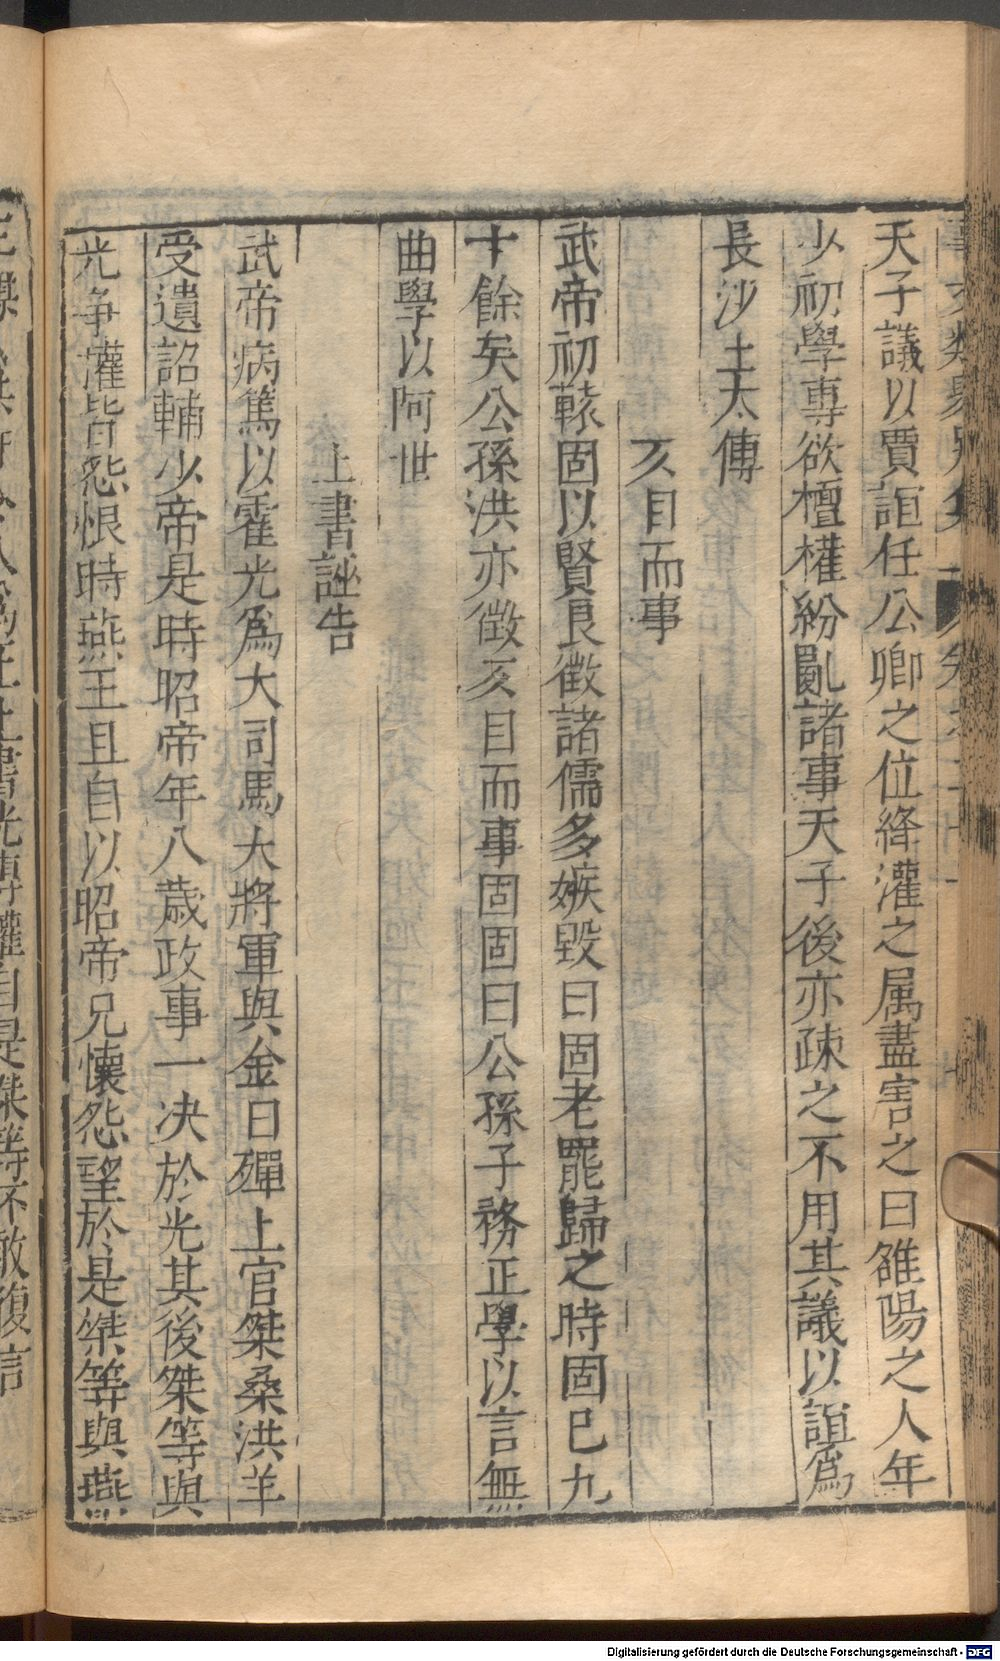 天子議以賈誼任公卿之位絳灌之属盡害之曰雒陽之人年
少初學專欲檀權紛亂諸事天子後亦疎之不用其議以誼爲
長沙王太傅
仄目而事
武帝初轅固以賢良徵諸儒多嫉毀曰固老罷歸之時固已九
十餘矣公孫洪亦徵仄目而事固固曰公孫子務正學以言無
曲學以阿世
上書誣告
武帝病篤以霍光爲大司馬大將軍與金日殫上官桀桑洪羊
受遺詔輔少帝是時昭帝年八歲政事一决於光其後桀等與
光争權皆怨恨時燕王且自以昭帝兄懷怨望於是桀等與燕
上書光專權自是桀等不敢復言
Digitalisierung gefördert durch die Deutsche Forschungsgemeinschaft - DFG